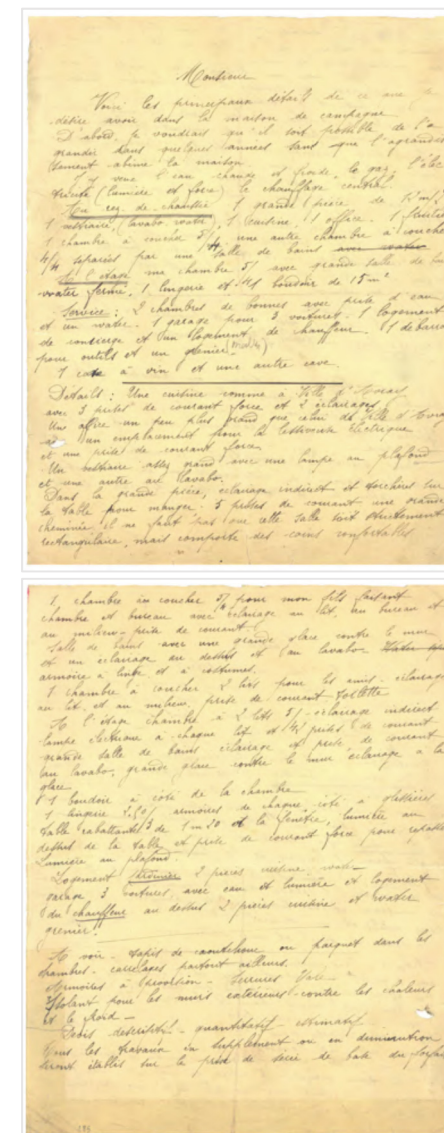 Monsieur
Voici les principaux détails de ce que je
désire avoir dans la maison de campagne
D'abord, je voudrais qu'il soit possible de l'a
grandir dans quelques années sans que l'agrandis
sement abîme la maison
Il y aura l'eau chaude et froide, le gaz, l'élec
tricité (lumière et force) le chauffage central
Au rez de chaussée 1 grande pièce de
1 vestiaire, (lavabo water), 1 cuisine, 1 office,
1 chambre à coucher une autre chambre à coucher
4/4 séparées par une salle de bains avec water
A l'étage une chambre 5/ avec grande salle de bai
water fermé. 1 lingerie et 1 boudoir de 15 m²
Service : 2 chambres de bonnes avec poste d'eau
et un water. 1 garage pour 3 voitures. 1 logement
de concierge et un logement de chauffeur. 1 débarras
pour outils et un grenier
1 cave à vin et une autre cave
Détails : Une cuisine comme à Ville d'Avray
avec 3 prises de courant force et 2 éclairages
Un office un peu plus grand que celui de Ville d'Avray
un emplacement pour la lessiveuse électrique
et une prise de courant force
Un vestiaire assez grand avec une lampe au plafond
et une autre au lavabo
Dans la grande pièce, éclairage indirect et torchère sur
la table pour manger. 5 prises de courant une grande
cheminée il ne faut pas que cette salle soit strictement
rectangulaire, mais comporte des coins confortables
1 chambre à coucher pour mon fils faisant
chambre et bureau avec éclairage au lit, au bureau et
au milieu - prise de courant
Salle de bains avec une grande glace contre le mur
et un éclairage au dessus et au lavabo
armoire à linge et à costumes.
1 chambre à coucher 2 lits pour les amis - éclairage
au lit et au milieu, prise de courant toilette
A l'étage chambre à 2 lits 5/ - éclairage indirect
lampe électrique à chaque lit et prises de courant
grande salle de bains éclairage et prise de courant
au lavabo, grande glace contre le mur éclairage à la
glace
1 boudoir à côté de la chambre
1 lingerie armoires de chaque côté à glissières
table rabattante de 1 m 20 et la fenêtre, lumière au
dessus de la table et prise de courant force pour repasser
Lumière au plafond
Logement jardinier 2 pièces cuisine, water
garage 3 voitures, avec eau et lumière et logement
du chauffeur au dessus 2 pièces cuisine et water
grenier
A voir - tapis de caoutchouc ou parquet dans les
chambres - carrelages partout ailleurs.
Armoires à - Serrures Yale
Isolant pour les murs extérieurs contre les chaleurs
et le froid -
Devis descriptif - quantitatif estimatif
Tous les travaux en supplément ou en diminution
seront établis sur la prise de série de base du forfait